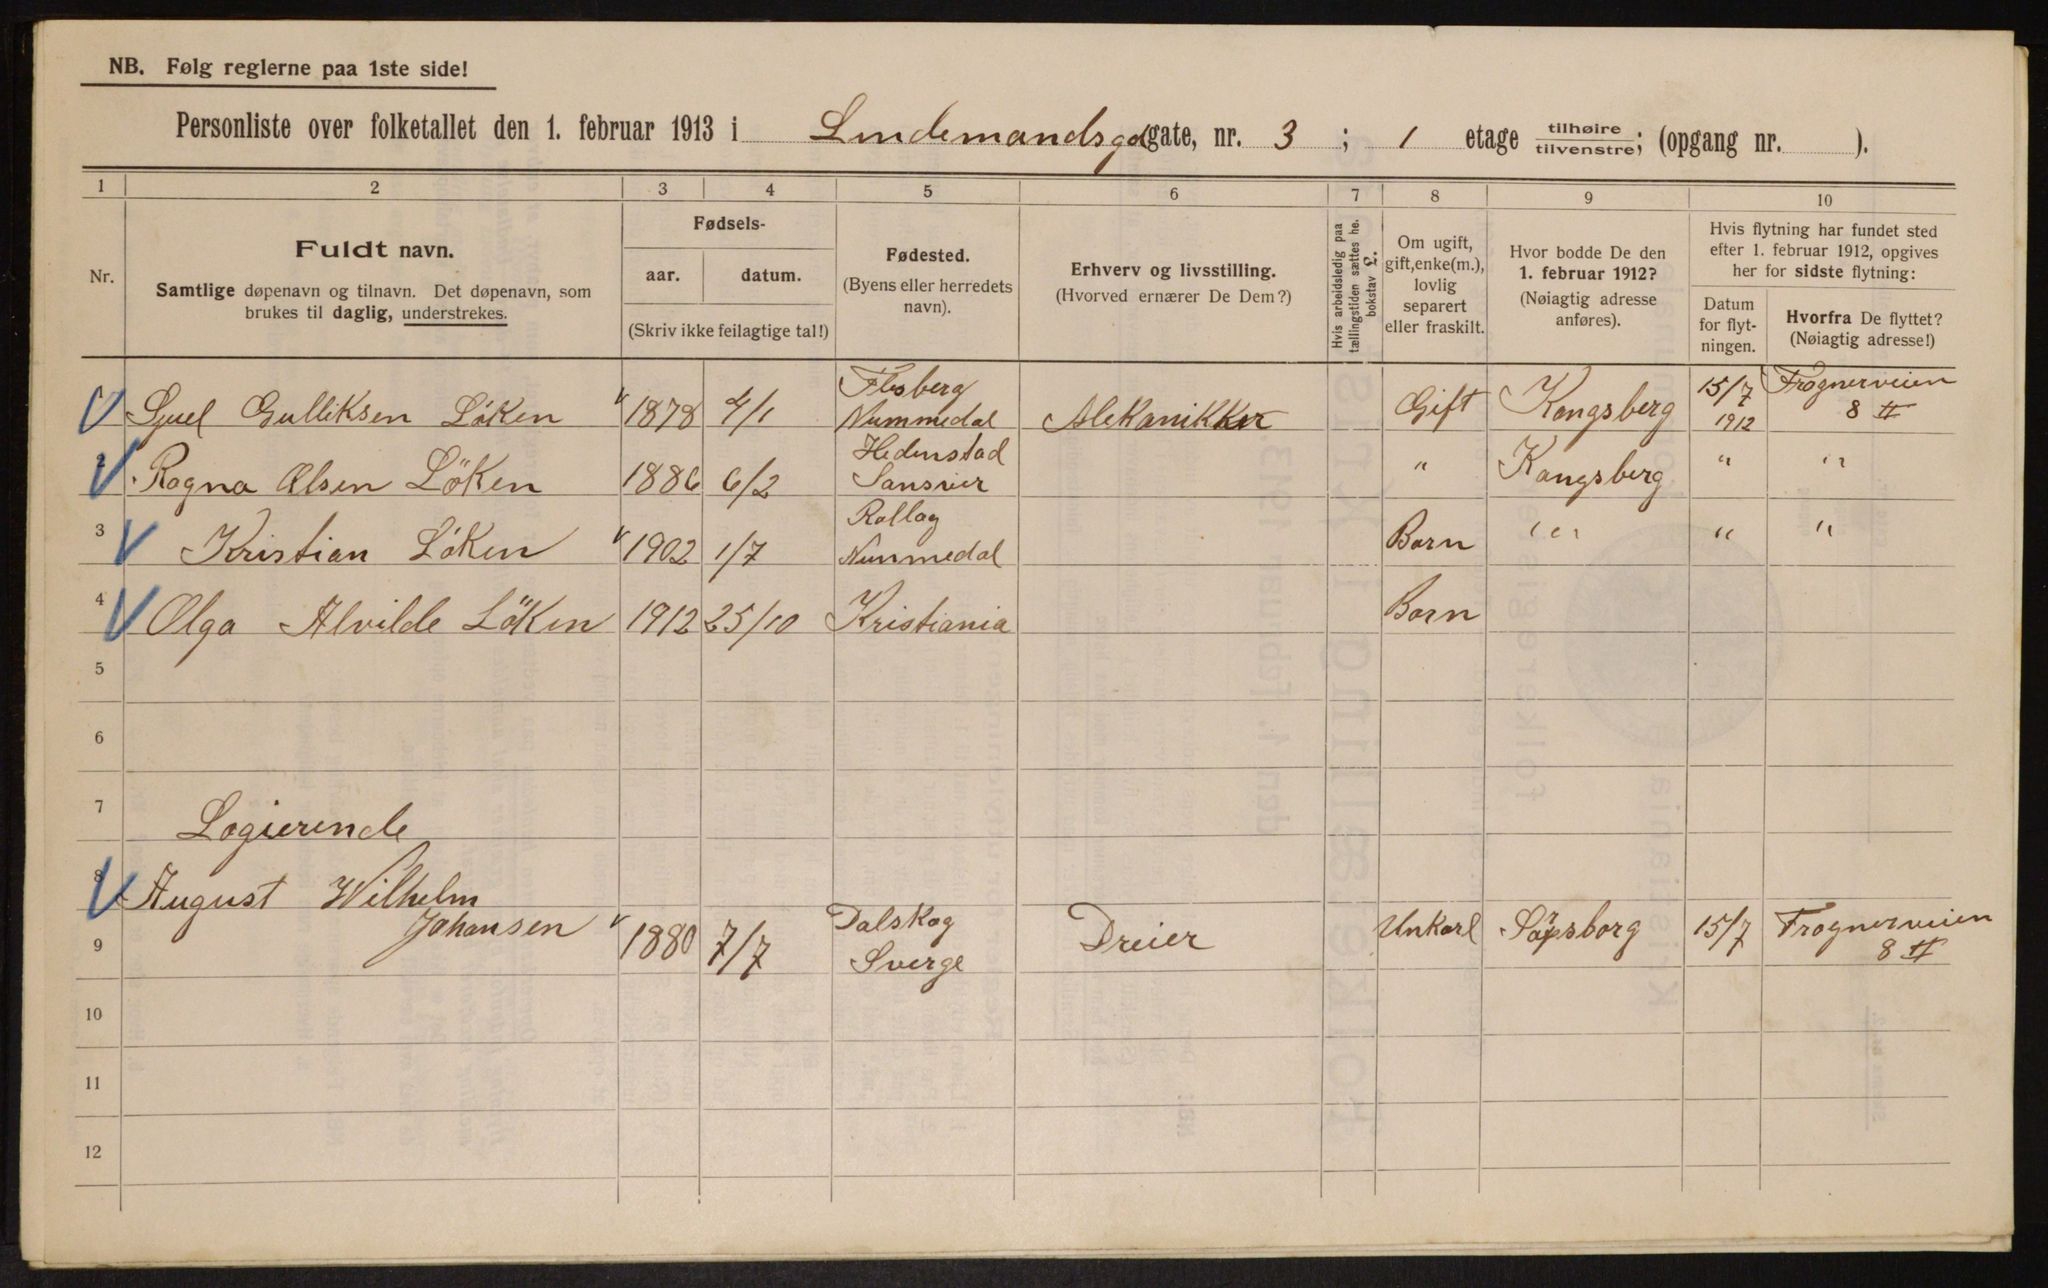 NB. Følg reglerne paa 1ste side!
Personliste over folketallet den 1. februar 1913 i Lindemandsgd gate, nr. 3 ; 1 etage tilhøire tilvenstre; (opgang nr. ).
1 2 3 4 5 6 7 8 9 10
Nr.
Fuldt navn.
Samtlige døpenavn og tilnavn. Det døpenavn, som
brukes til daglig, understrekes.
Fødsels-
aar. datum.
(Skriv ikke feilagtige tal!)
Fødested.
(Byens eller herredets
navn).
Erhverv og livsstilling.
(Hvorved ernærer De Dem?)
Hvis arbeidsledig paa
tællingstiden sættes he.
bokstav L.
Om ugift,
gift, enke(m.),
lovlig
separert
eller fraskilt.
Hvor bodde De den
1. februar 1912?
(Nøiagtig adresse
anføres).
Hvis flytning har fundet sted
efter 1. februar 1912, opgives
her for sidste flytning:
Datum
for flyt-
ningen.
Hvorfra De flyttet?
(Nøiagtig adresse!)
Sjuel Gulliksen Löken 1878 4/1 Flesberg Nummedal Mekanikker Gift Kongsberg 15/7 1912 Frognerveien 8 II
Ragna Olsen Löken 1886 6/2 Hedenstad Sansver " Kongsberg " "
3 Kristian Löken 1902 1/7 Rollag Nummedal Barn " " " "
4 Olga Alvilde Löken 1912 25/10 Kristiania Barn
5
6
7
Logierende
8 August Wilhelm
9 Johansen 1880 7/7 Dalskog Sverge Dreier Unkarl Sarpsborg 15/7 Frognerveien 8 II
10
11
12